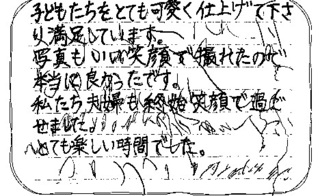 子どもたちをとても可愛く仕上げて下さ
り満足しています。
写真もいい笑顔で撮れたので
本当に良かったです。
私たち夫婦も終始笑顔で過ご
せました。
とても楽しい時間でした。